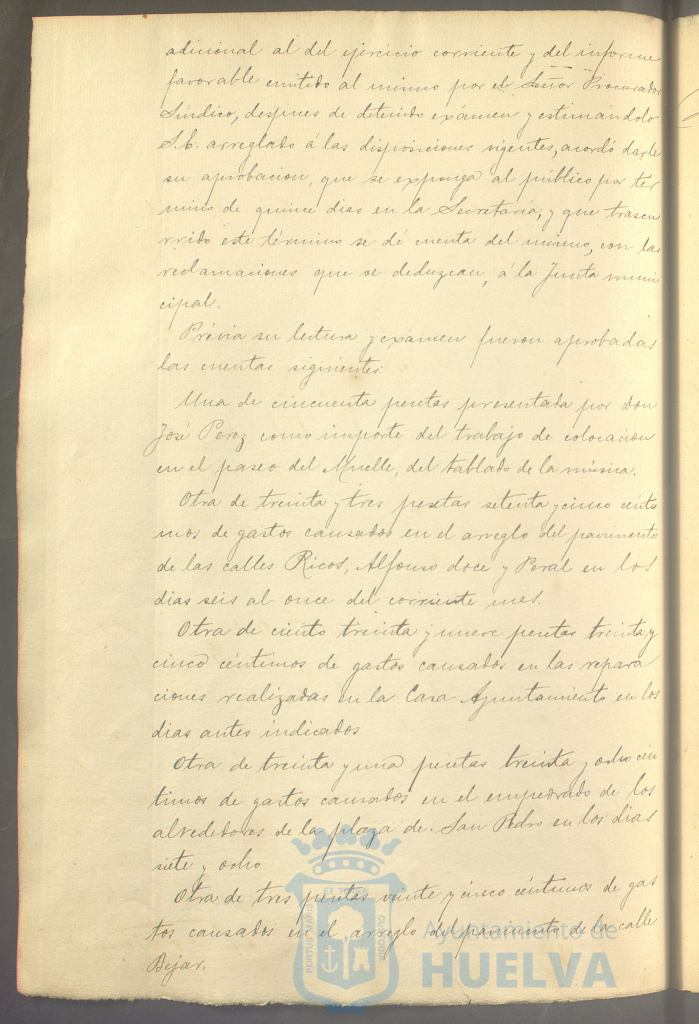 adicional al del ejercicio corriente y del informe
favorable emitido al mismo por el Señor Procurador
Síndico, despues de detenido exámen y estimándolo
S.E. arreglado á las disposiciones vigentes, acordó darle
su aprobacion, que se exponga al público por tér
mino de quince dias en la Secretaría, y que trascu
rrido este término se dé cuenta del mismo, con las
reclamaciones que se deduzcan, á la Junta muni
cipal.
Prévia su lectura y exámen fueron aprobadas
las cuentas siguientes:
Una de cincuenta pesetas presentada por Don
José Perez como importe del trabajo de colocacion
en el paseo del Muelle, del tablado de la música.
Otra de treinta y tres pesetas setenta y cinco cénti
mos de gastos causados en el arreglo del pavimento
de las calles Ricos, Alfonso doce y Peral en los
dias seis al once del corriente mes.
Otra de ciento treinta y nueve pesetas treinta y
cinco céntimos de gastos causados en las repara
ciones realizadas en la Casa Ayuntamiento en los
dias antes indicados
Otra de treinta y una pesetas treinta y ocho cén
timos de gastos causados en el empedrado de los
alrededores de la plaza de San Pedro en los dias
siete y ocho
Otra de tres pesetas veinte y cinco céntimos de gas
tos causados en el arreglo del pavimento de la calle
Bejar.
PORTUS MARIS
ET TERRÆ
CUSTODIA
Ayuntamiento de
HUELVA